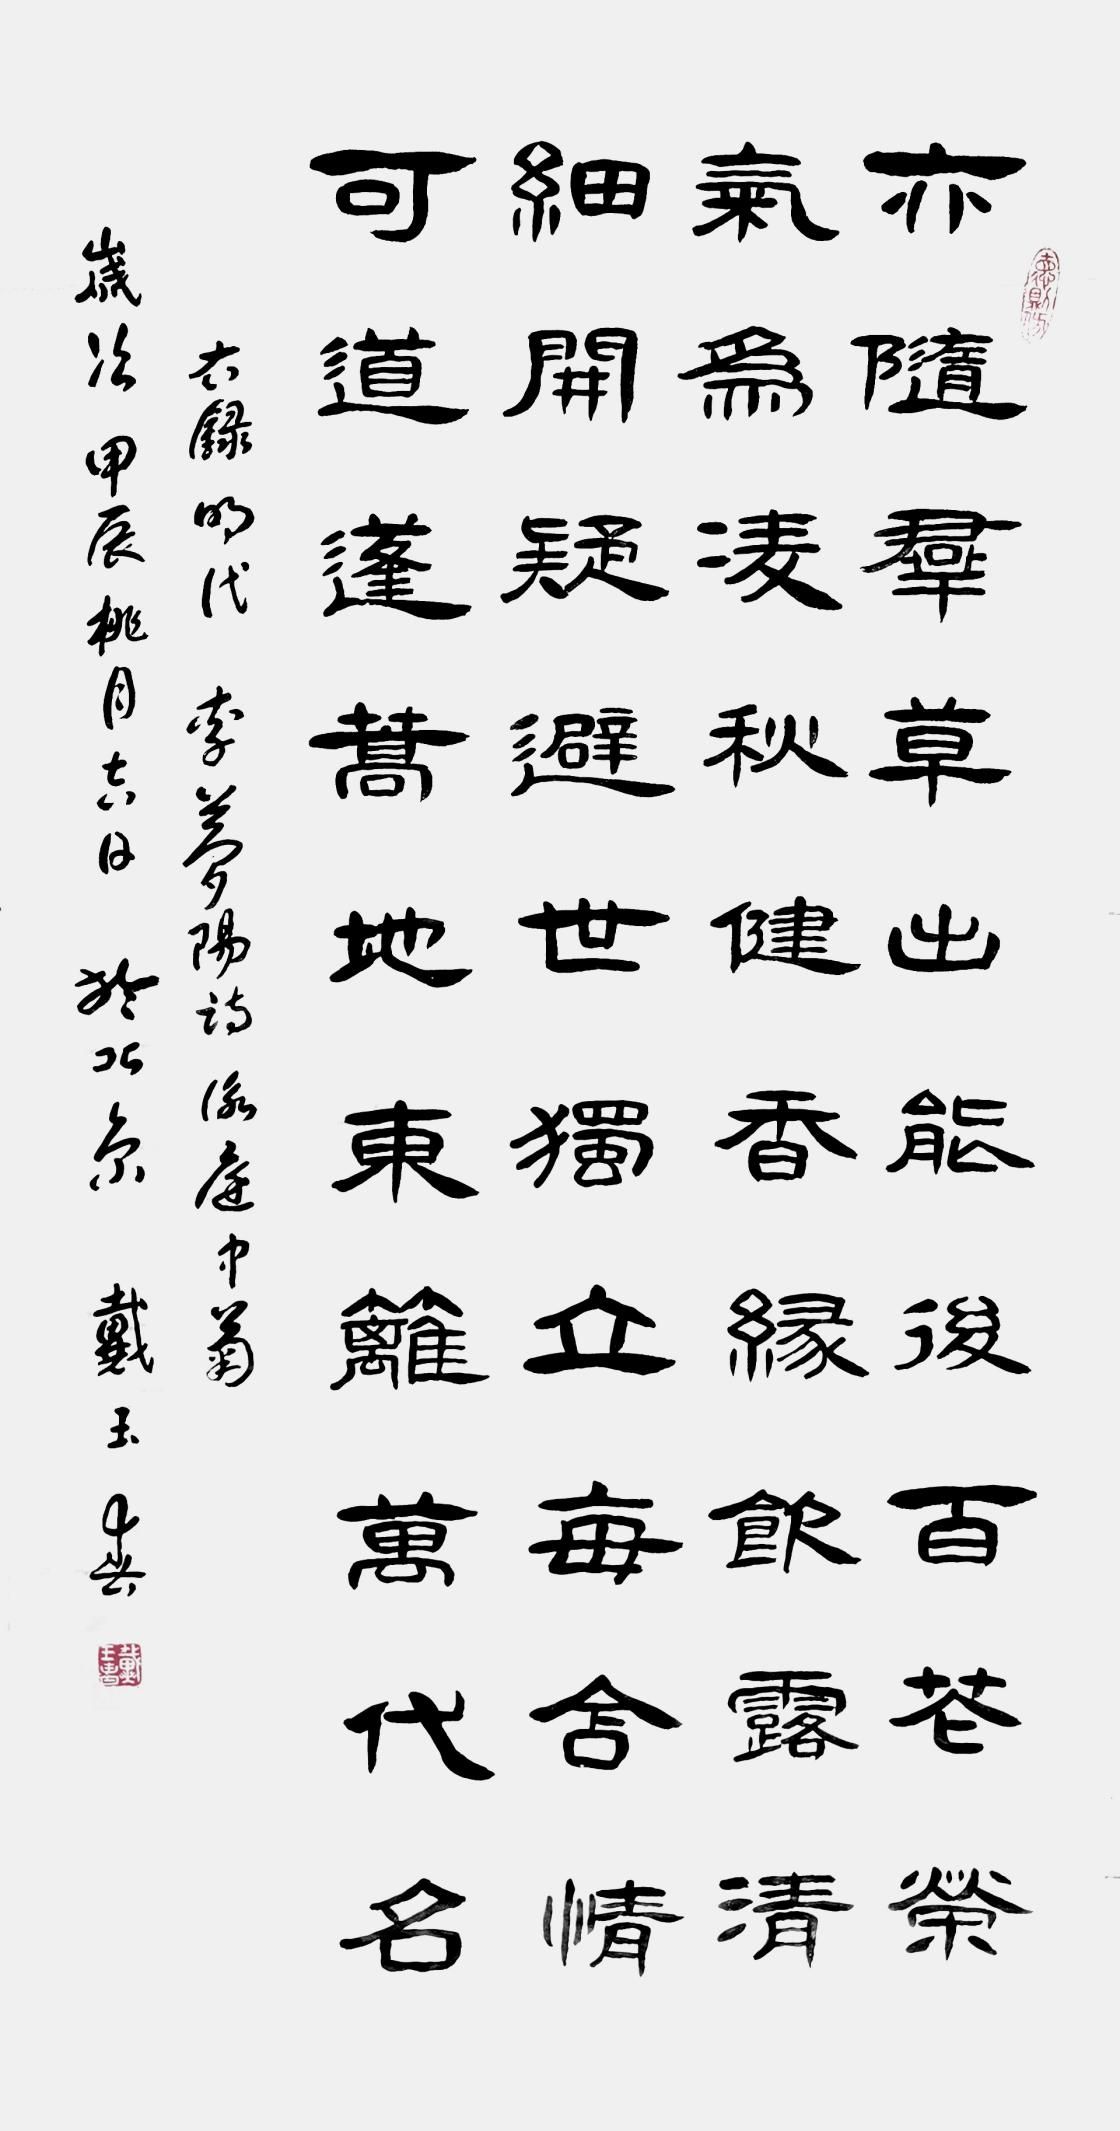 亦隨羣草出能後百花榮
氣爲凌秋健香緣飲露清
細開疑避世獨立每含情
可道蓬蒿地東籬萬代名
右錄明代李夢陽詩詠庭中菊
歲次甲辰桃月吉日於北京戴玉書
戴玉書